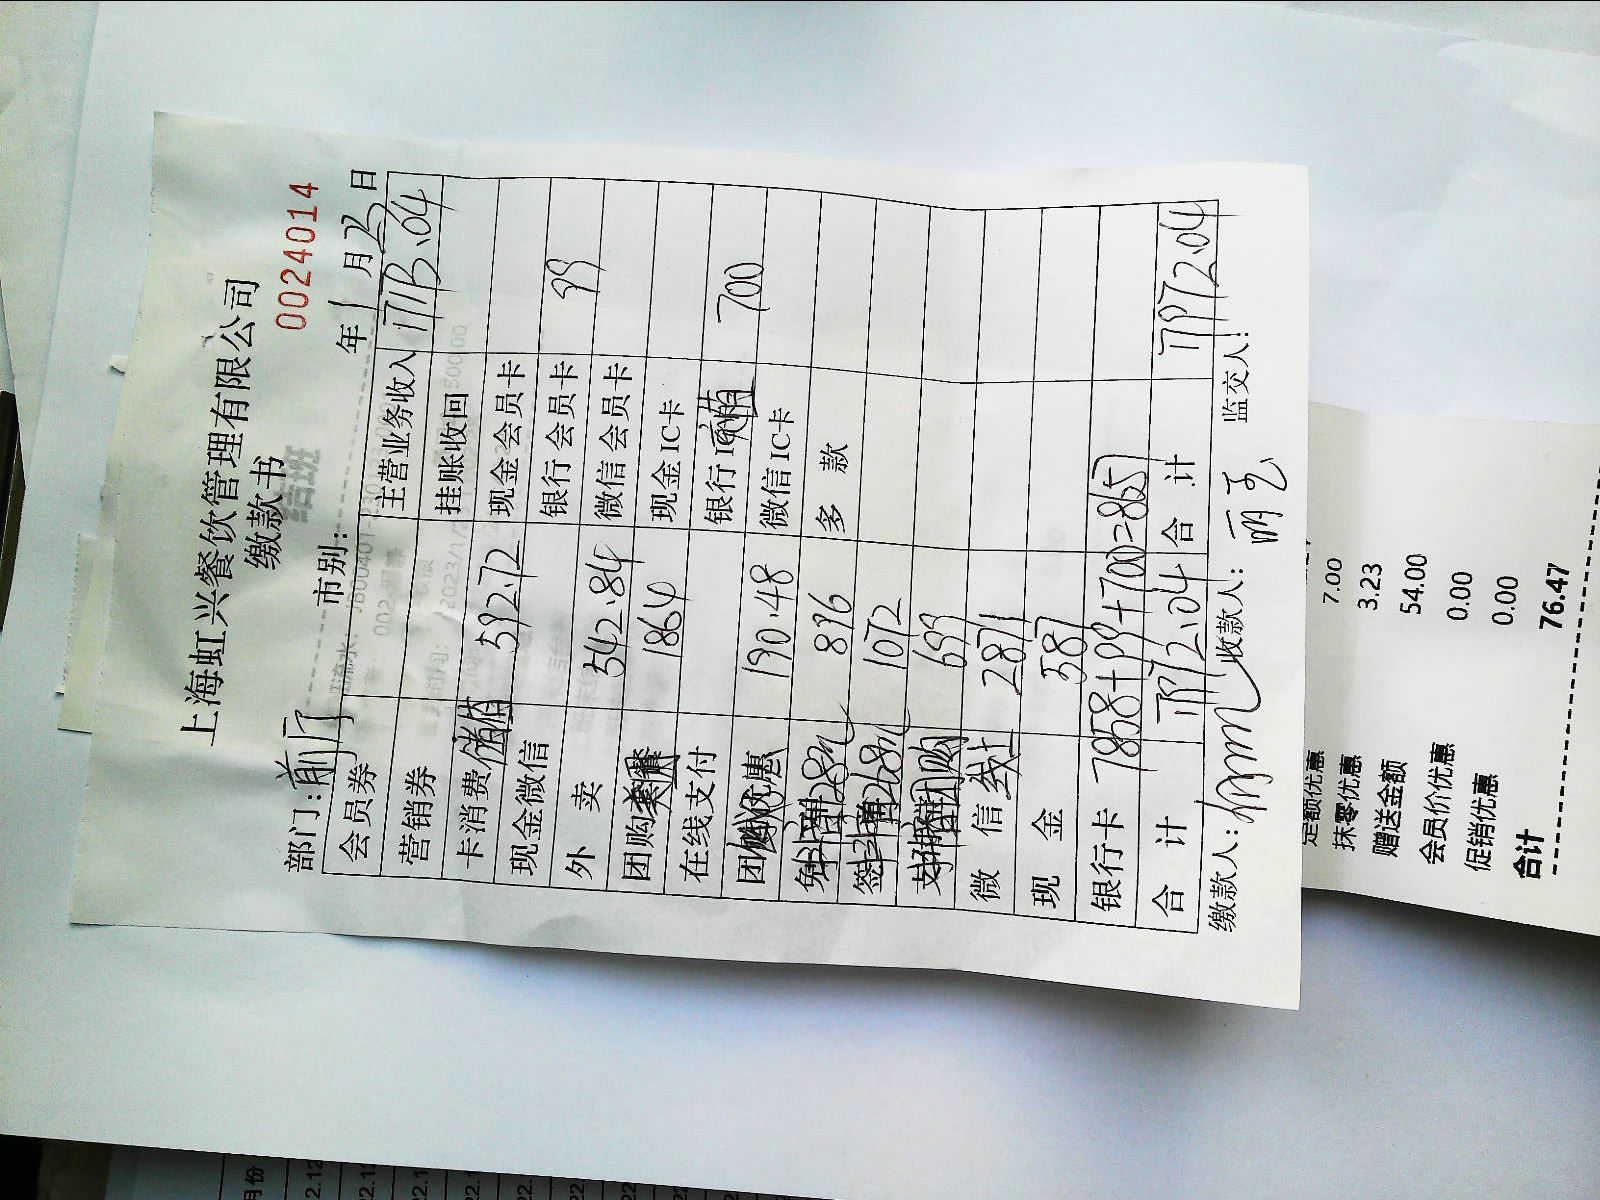 上海虹兴餐饮管理有限公司
缴款书
0024014
部门:前厅 市别: 年1月23日
会员券 主营业务收入
营销券 挂账收回
卡消费储值 592.72 现金会员卡
现金微信 银行会员卡 99
外 卖 542.84 微信会员卡
团购套餐 1864 现金IC卡
在线支付 银行
团购优惠 190.48 微信IC卡 700
896 多 款
1072
团购 699
微 信 线上 2871
现 金 387
银行卡 7858+99+700=8657
合 计 合 计
缴款人: 收款人: 监交人:
定额优惠 7.00
抹零优惠 3.23
赠送金额 54.00
会员价优惠 0.00
促销优惠 0.00
合计 76.47
月份